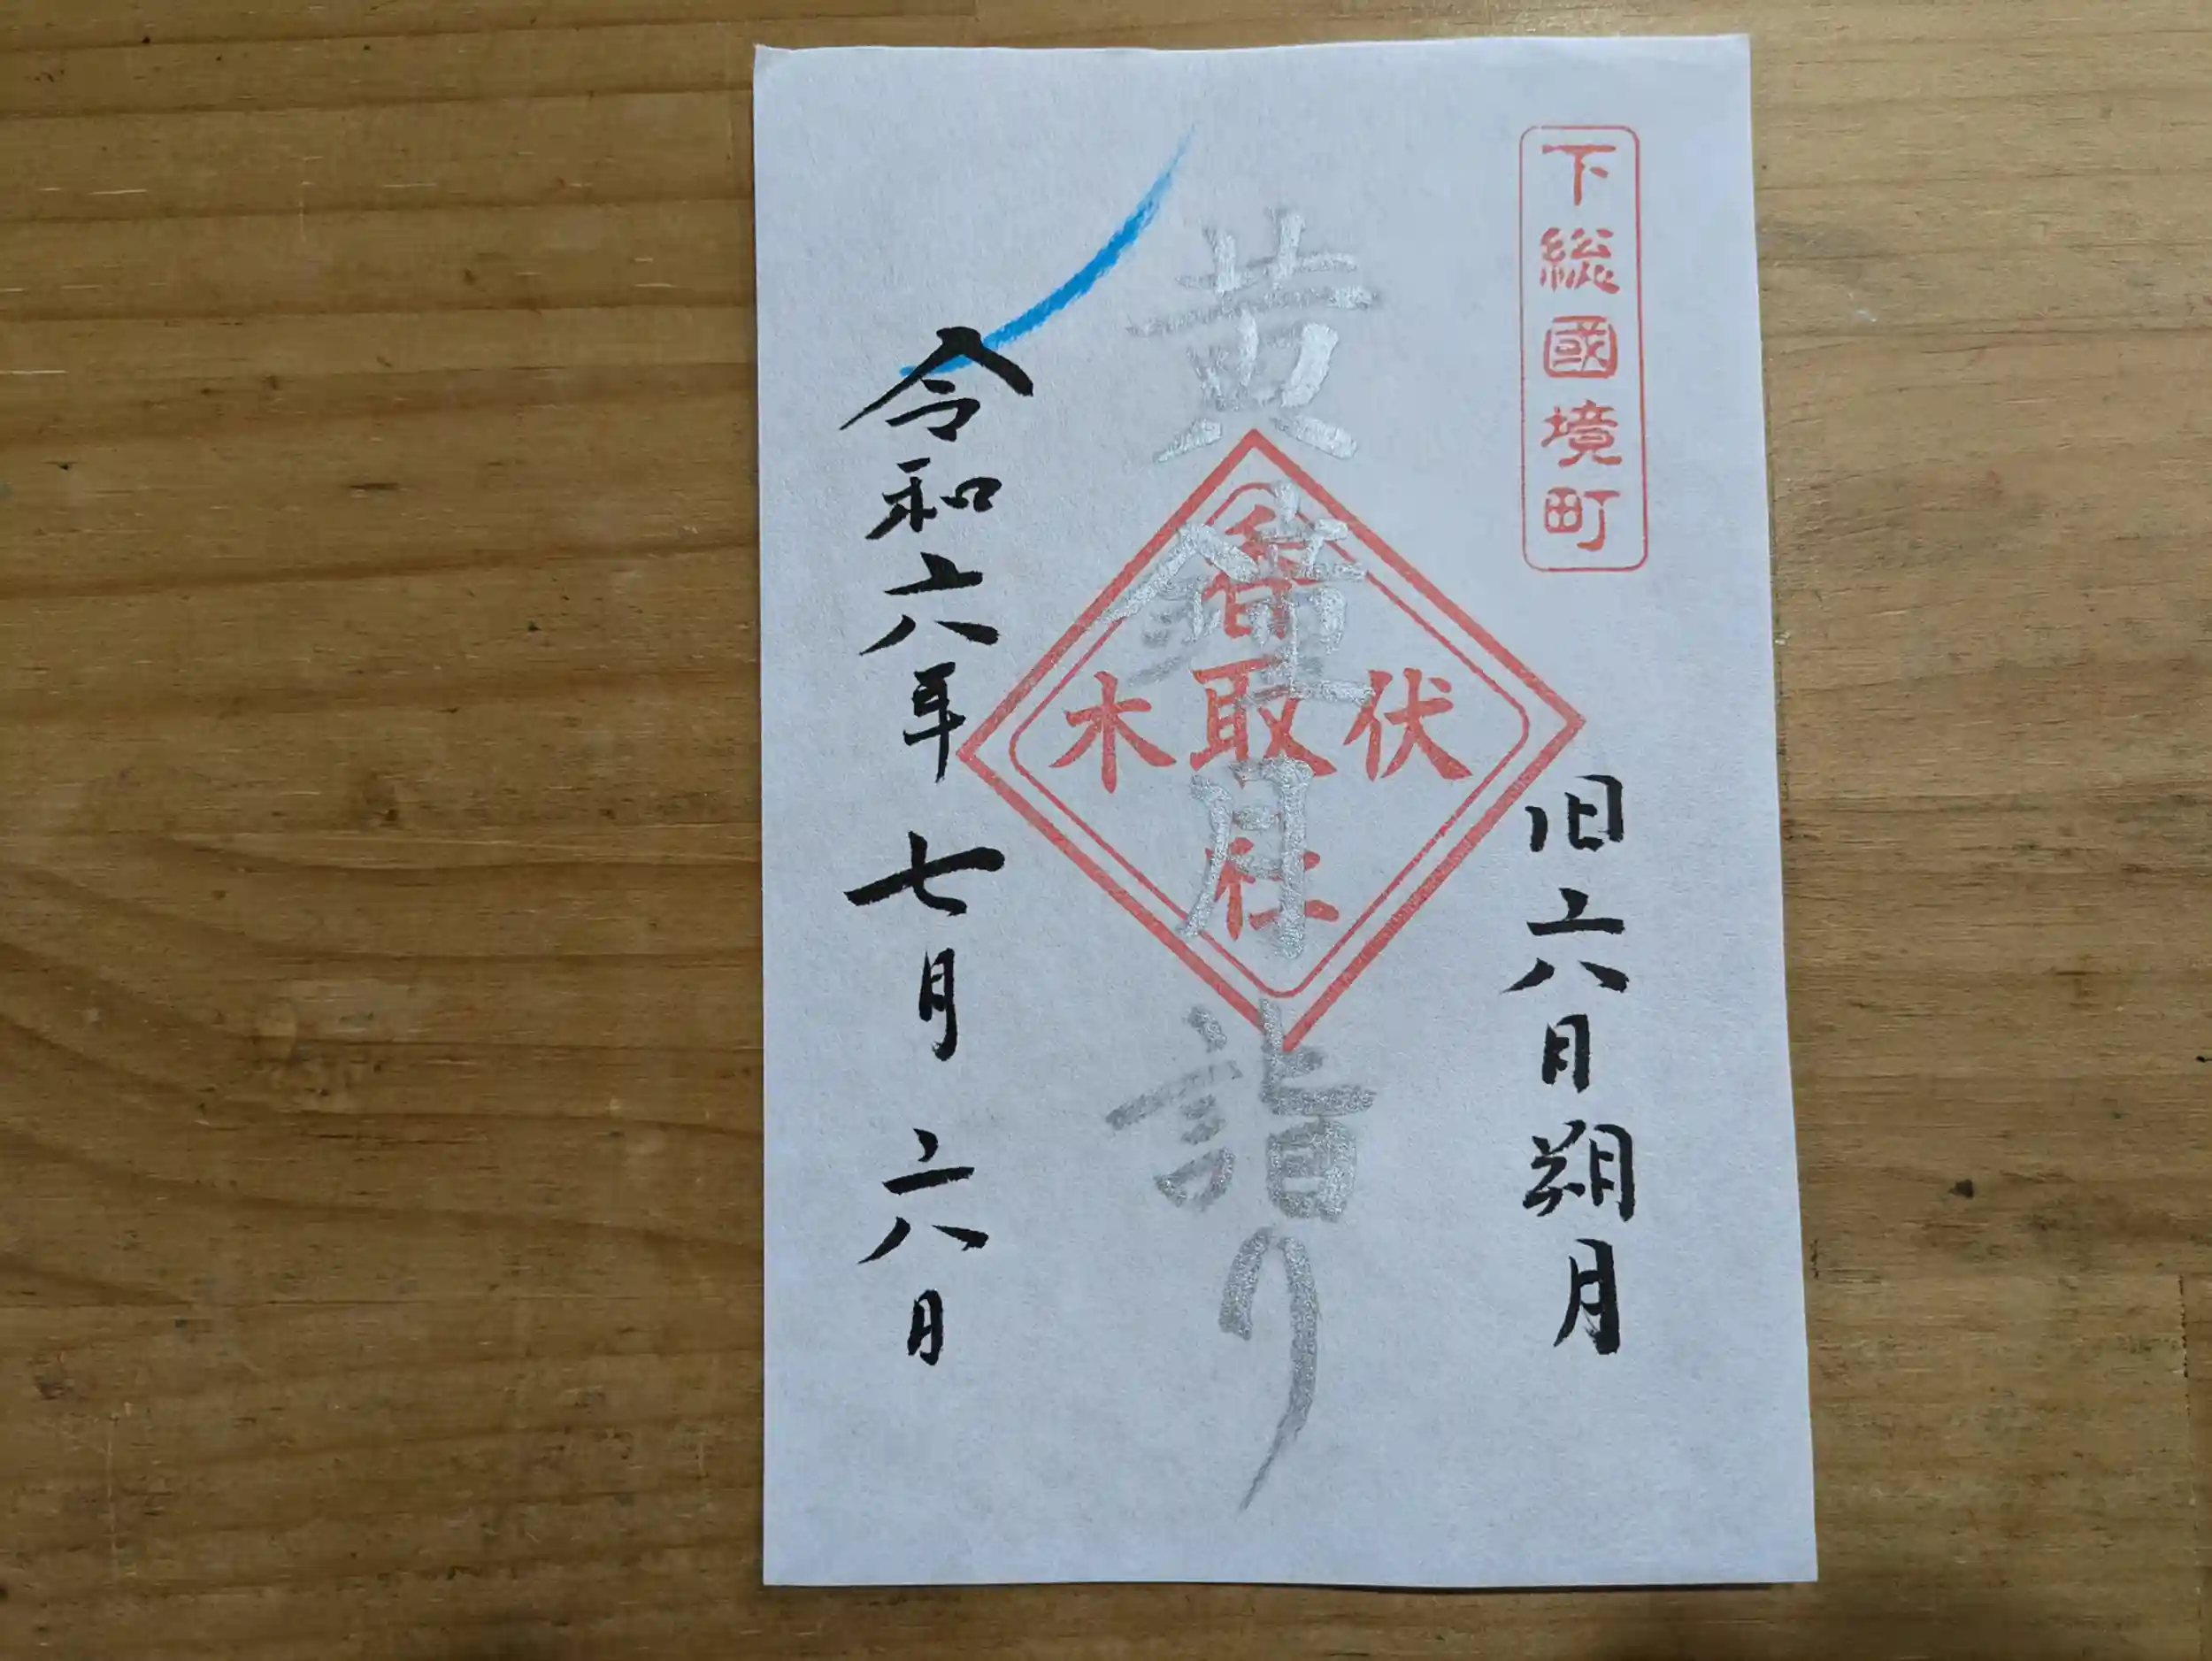 下総國境町
旧六月朔月
黄鐘月詣り
伏木
香取社
令和六年七月六日